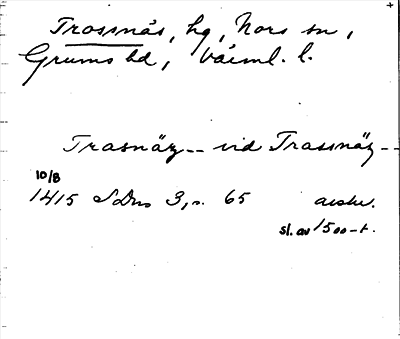 Trossnäs, hg, Nors sn,
Grums hd, Värml. l.
Trasnäz -- vid Trassnäz --
10/8
1415 SDns 3, s. 65 avskr.
sl. av 1500-t.